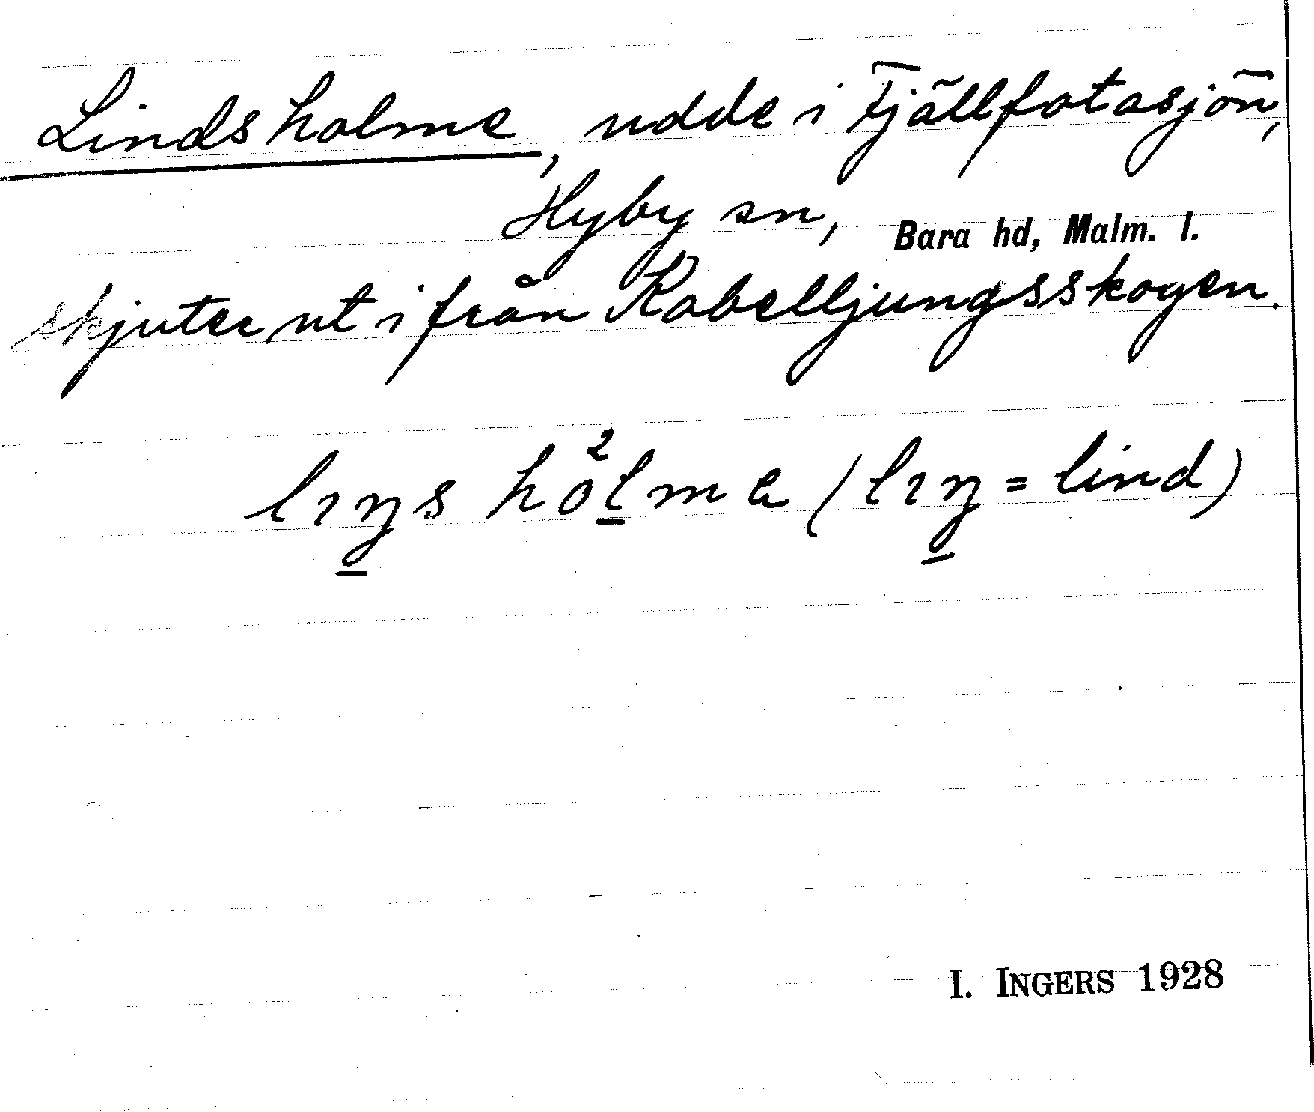 Lindsholme, udde i Fjällfotasjön,
Hyby sn, Bara hd, Malm. l.
skjuter ut ifrån Kabelljungsskogen.
lıŋs ho²lma (lıŋ = lind)
I. INGERS 1928